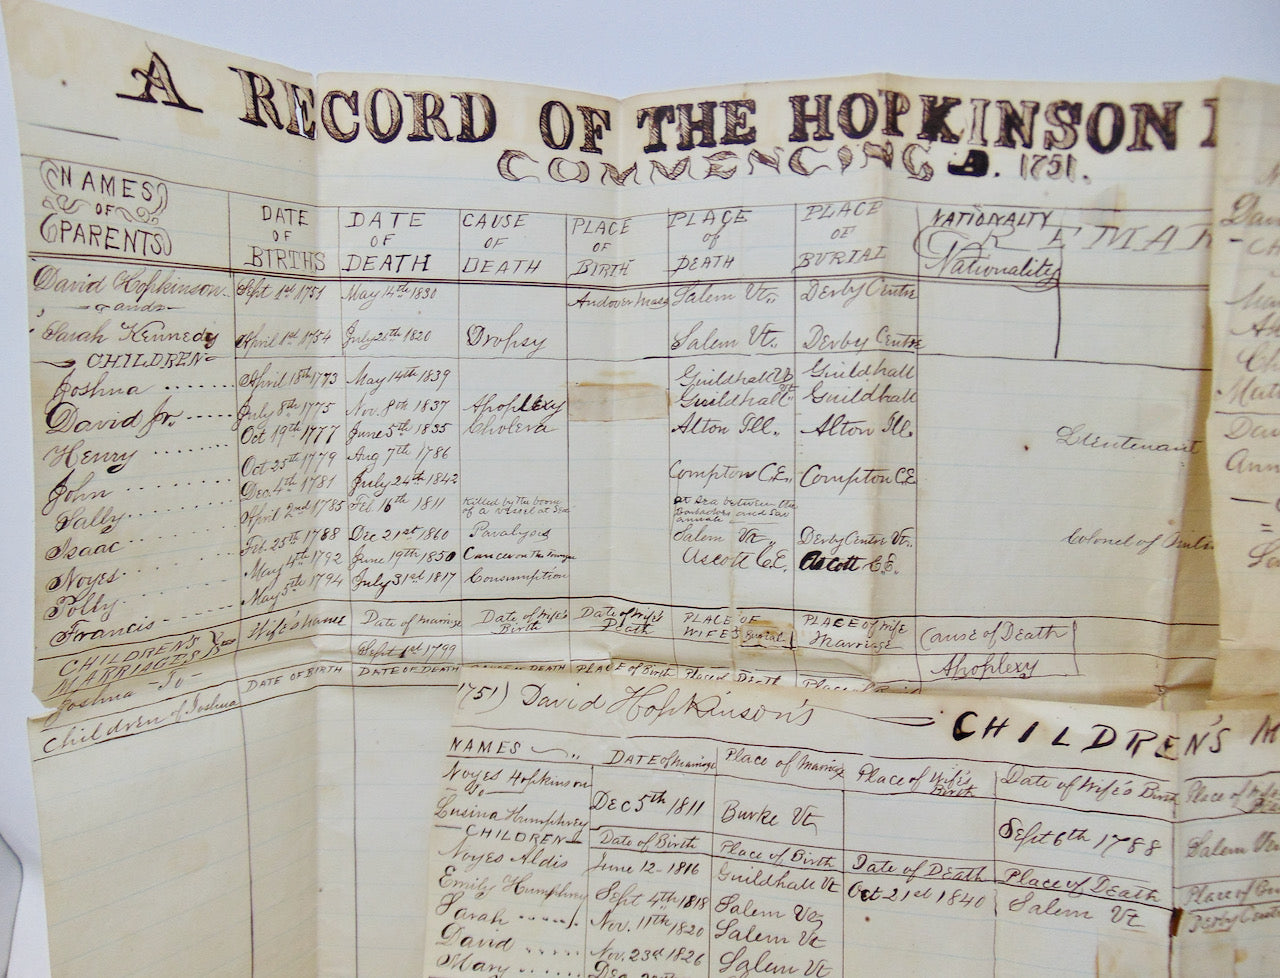 A RECORD OF THE HOPKINSON
COMMENCING A. 1751.
NAMES OF PARENTS
DATE OF BIRTHS
DATE OF DEATH
CAUSE OF DEATH
PLACE OF BIRTH
PLACE of DEATH
PLACE OF BURIAL
NATIONALITY
Nationality
REMAR
David Hopkinson Sept 1st 1751 May 14th 1830 Andover Mass Salem Vt. Derby Centre
and
Sarah Kennedy April 1st 1754 July 26th 1820 Dropsy Salem Vt. Derby Centre
CHILDREN
Joshua April 18th 1773 May 14th 1839 Guildhall Vt Guildhall
David Jr. July 8th 1775 Nov. 8th 1837 Apoplexy Guildhall Vt Guildhall
Henry Oct 19th 1777 June 5th 1835 Cholera Alton Ill. Alton Ill. Lieutenant
John Oct 25th 1779 Aug 7th 1786
Sally Dec. 4th 1781 July 24th 1842 Compton C.E. Compton C.E
Isaac April 2nd 1785 Feb 16th 1811 Killed by the boom of a vessel at Sea at Sea between
Noyes Feb. 25th 1788 Dec 21st 1860 Paralysis Salem Vt. Derby Centre Vt. Colonel of
Polly May 4th 1792 June 19th 1850 Cancer on the Ascott C.E. Ascott C.E.
Francis May 5th 1794 July 31st 1817 Consumption
CHILDREN'S MARRIAGES Wife's names Date of Marriage Date of Wife's Birth Date of Wife's Death PLACE OF WIFE'S Burial PLACE OF WIFE Marriage Cause of Death
Joshua - To - Sept 1st 1799 Apoplexy
Children of Joshua DATE OF BIRTH DATE OF DEATH CAUSE OF DEATH PLACE of Birth Place of Death
1751) David Hopkinson's CHILDREN'S M
NAMES DATE of Marriage Place of Marriage Place of Wife's Birth Date of Wife's Birth Place of Wife
Noyes Hopkinson
To
Lusina Humphrey Dec 5th 1811 Burke Vt Sept 6th 1788 Salem
CHILDREN Date of Birth Place of Birth Date of Death Place of Death Place of
Noyes Aldis June 12 - 1816 Guildhall Vt Oct 21st 1840 Salem Vt Derby Cent
Emily Humphrey Sept 4th 1818 Salem Vt
Sarah Nov. 11th 1820 Salem Vt
David Nov. 23d 1826 Salem Vt
Mary Dec